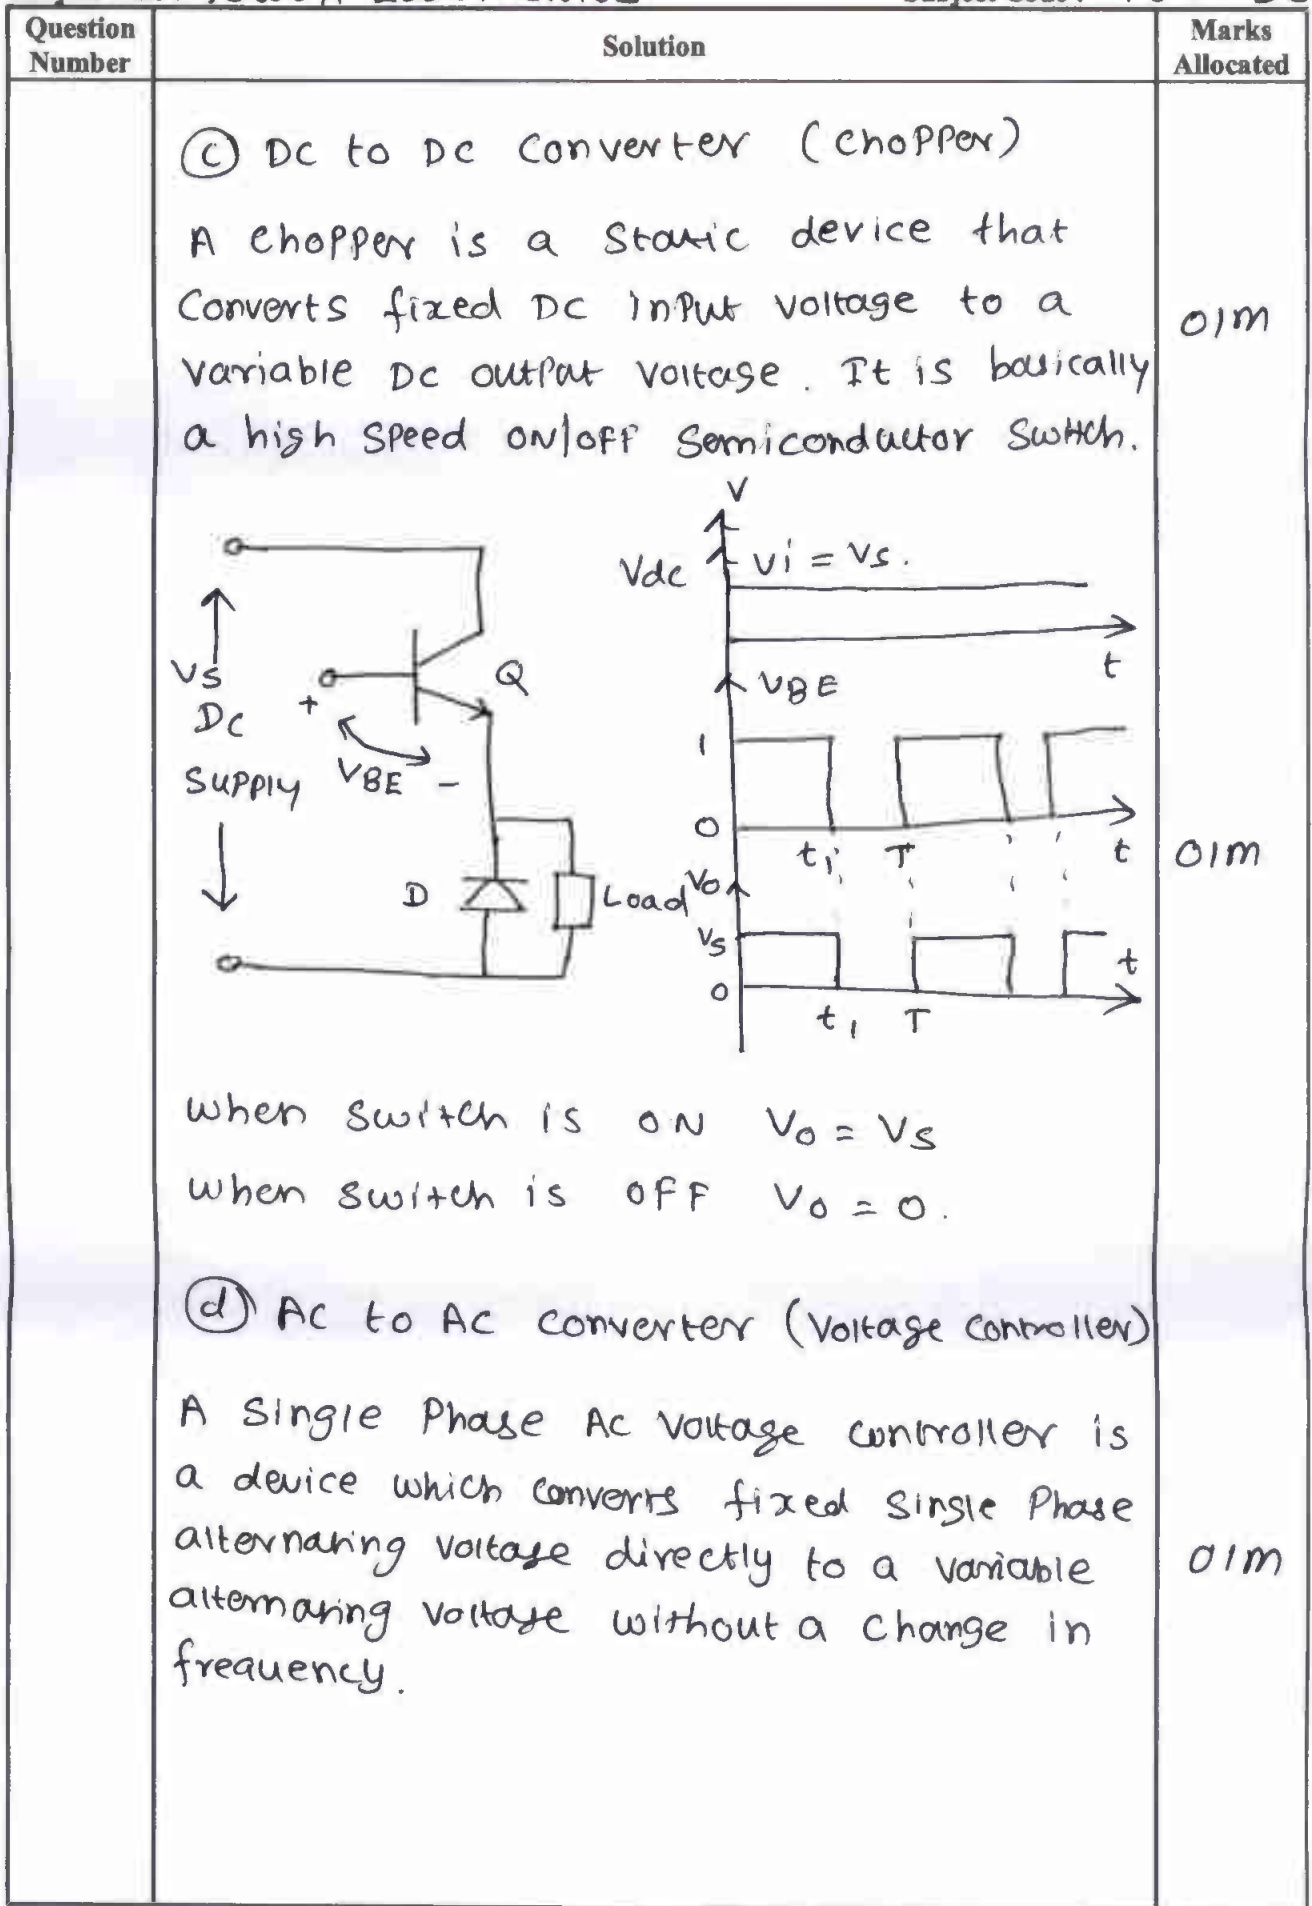 Question Number
Solution
Marks Allocated
(c) DC to DC Converter (chopper)
A chopper is a static device that
Converts fixed DC input voltage to a
01M
variable DC output voltage. It is basically
a high speed ON/OFF Semiconductor Switch.
V
Vdc
Vi = Vs.
t
Vs
DC
Supply
+
VBE
-
Q
D
Load
VBE
1
0
t1
T
t
01M
Vo
Vs
0
t1
T
t
When switch is ON Vo = Vs
When switch is OFF Vo = 0.
(d) AC to AC converter (Voltage controller)
A Single Phase AC Voltage controller is
a device which converts fixed Single Phase
alternating voltage directly to a variable
01M
alternating voltage without a change in
frequency.